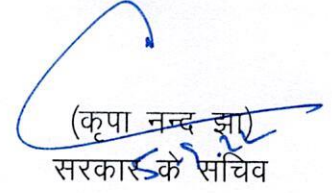 (कृपा नन्द झा)
सरकार के सचिव